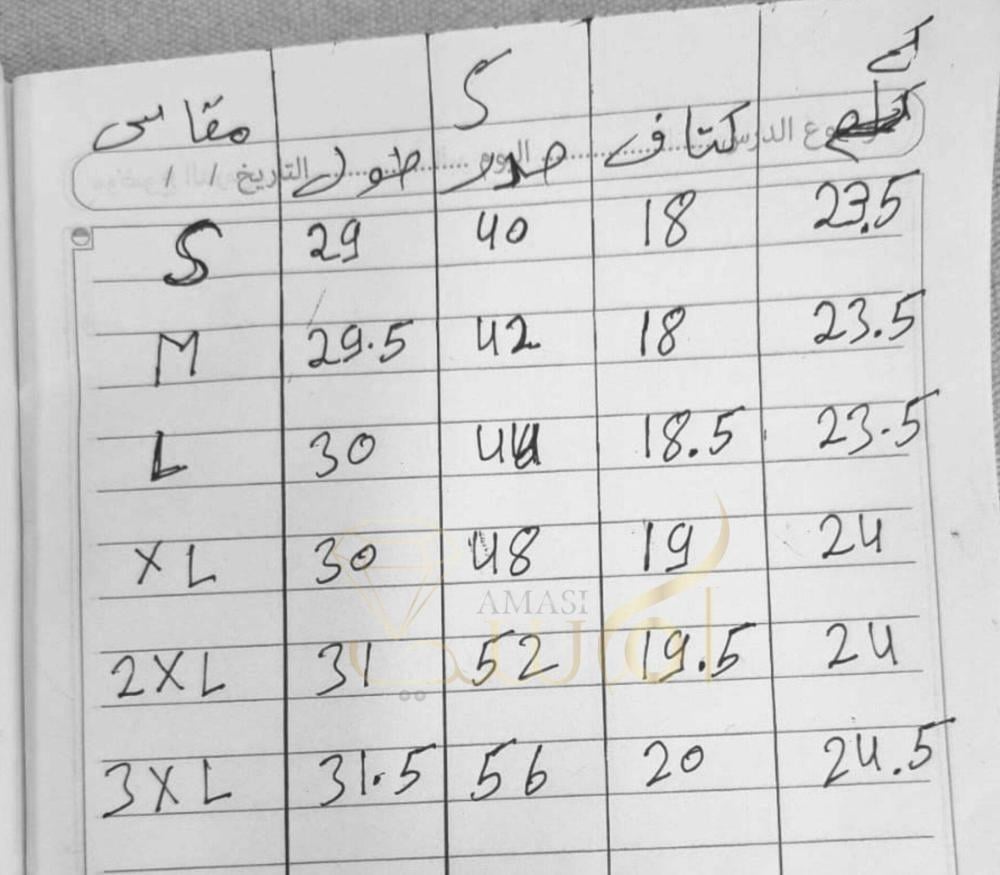 S
كم
مقاس طول صدر كتاف
التاريخ / / اليوم الدرس
S 29 40 18 23.5
M 29.5 42 18 23.5
L 30 44 18.5 23.5
XL 30 48 19 24
AMASI
أماسي
2XL 31 52 19.5 24
3XL 31.5 56 20 24.5